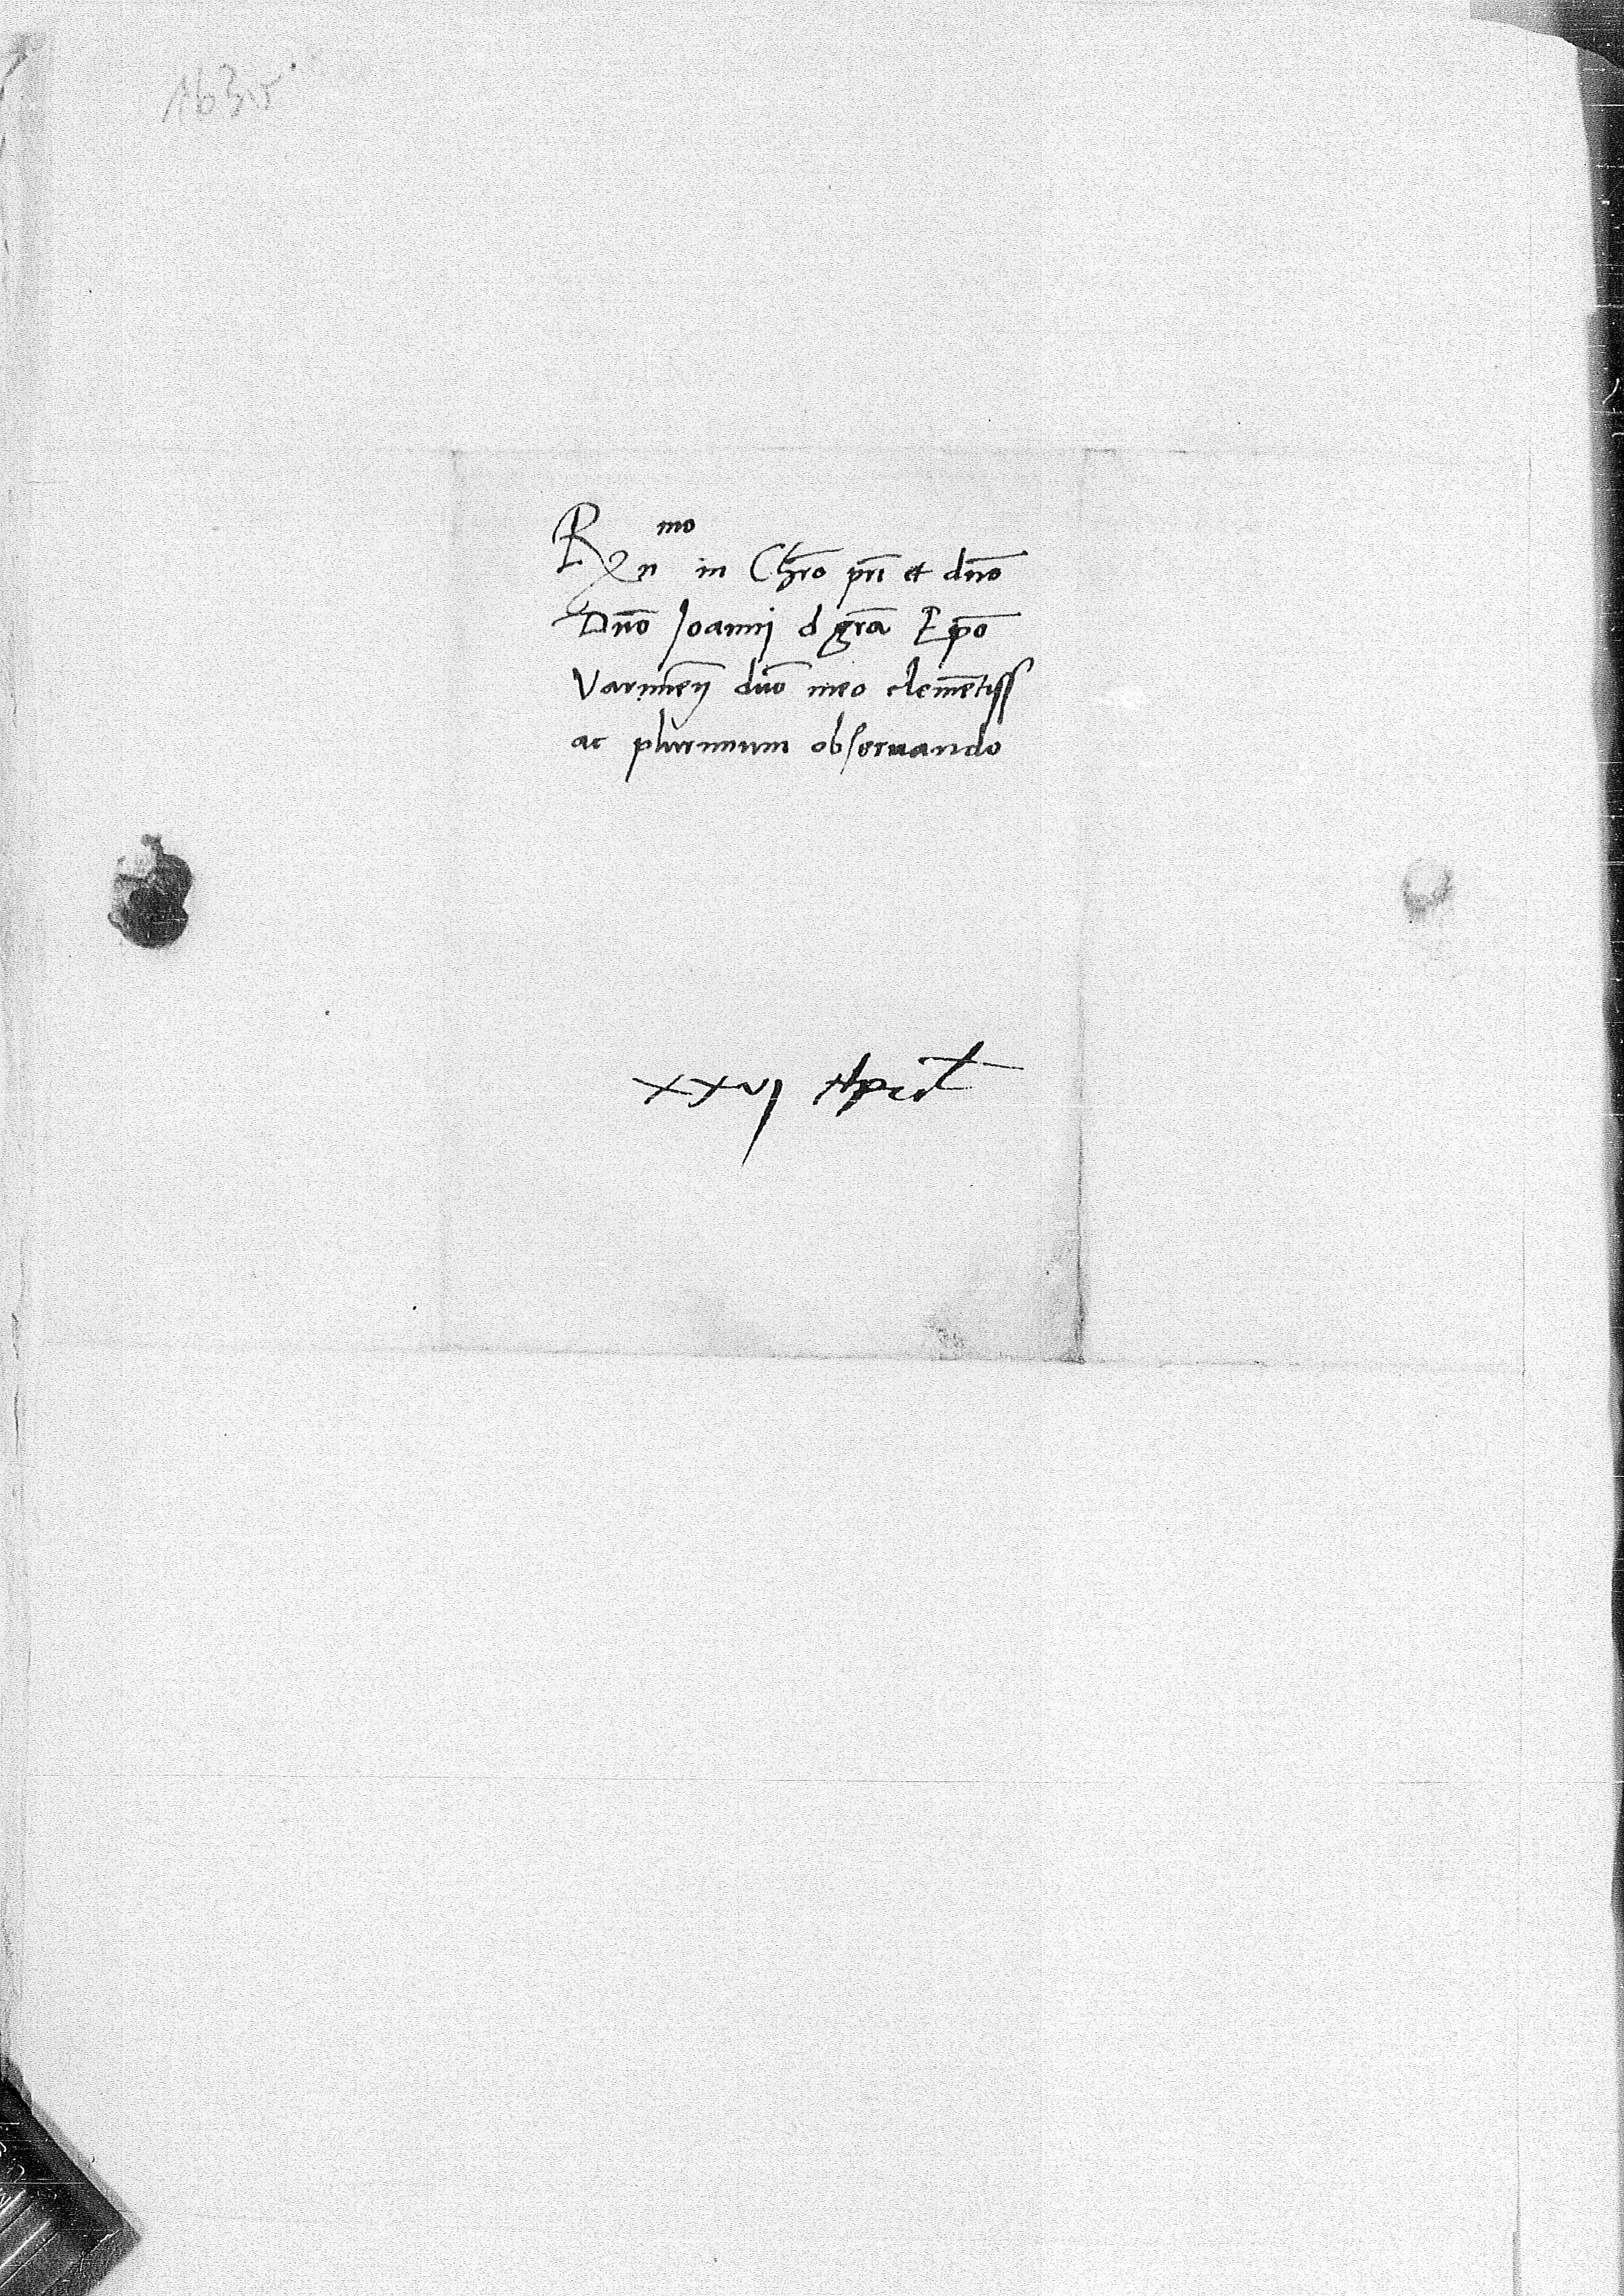 1630
R֊x̄n mo in Chr̄o pr̄i et dn̄o
Dn̄o Joannj d grā Ep̄o
Varmień dn̄o meo clemētiss
ac plurimum obseruando
xxvj Apríl